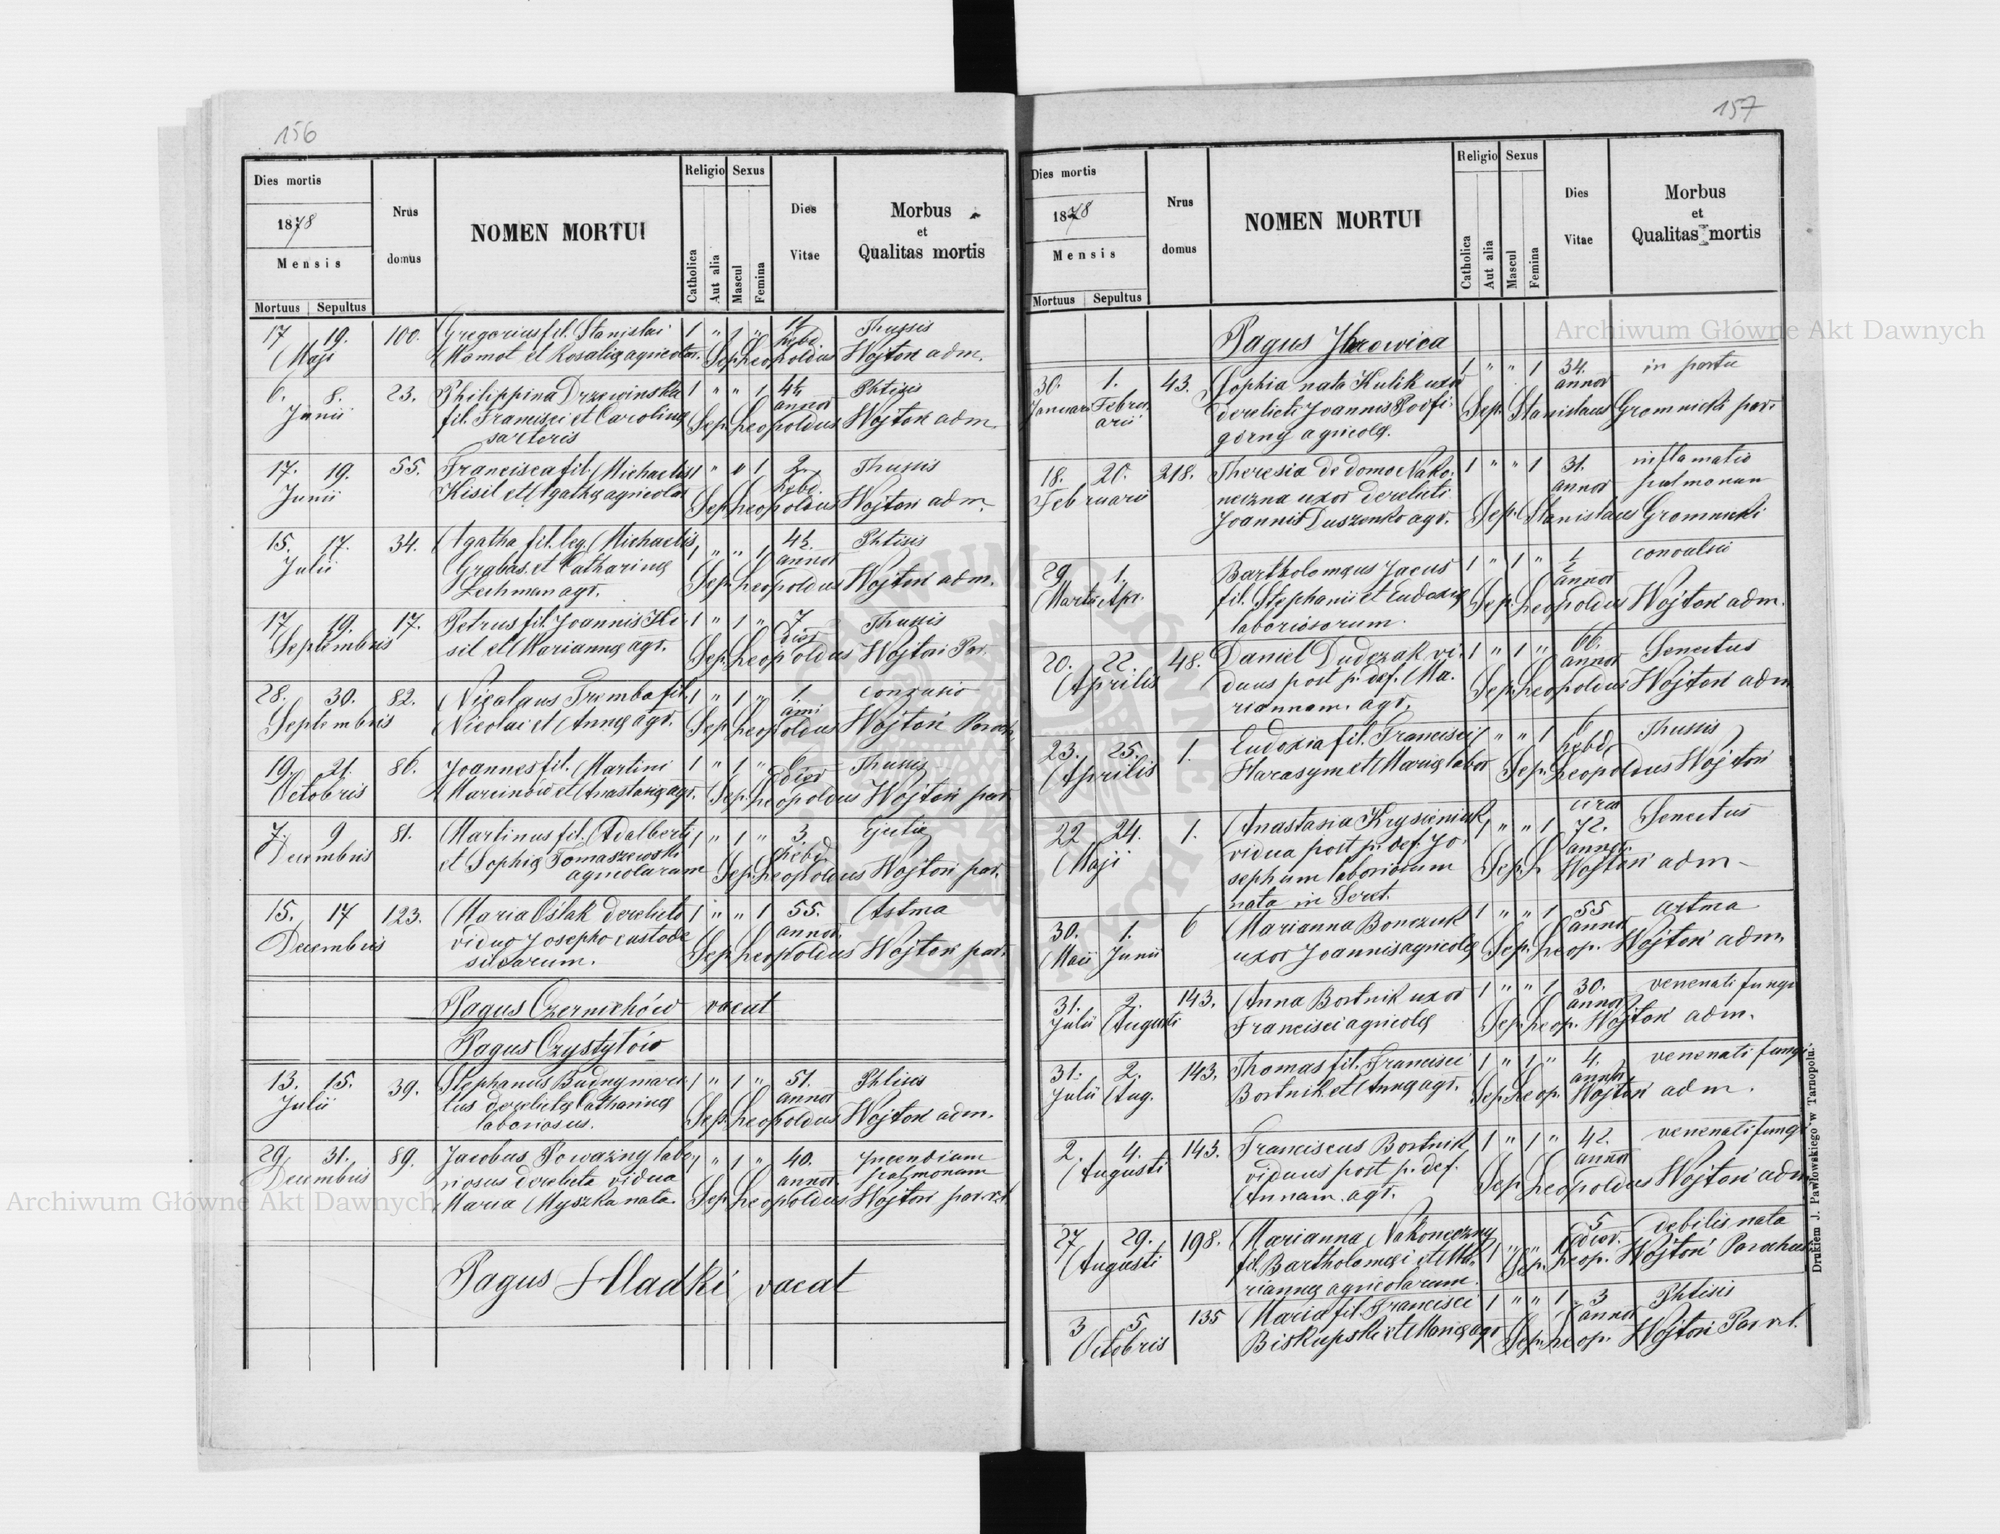 156
Dies mortis
1878
Mensis
Mortuus Sepultus
Nrus domus
NOMEN MORTUI
Religio Sexus
Catholica Aut alia Mascul Femina
Dies Vitae
Morbus
et
Qualitas mortis
17 19. 100. Gregorius fil. Stanislai 1 " 1 " 11 Thussis
Maji Mamot et Rosalię agricolar. hebd.
Sep. Leopoldus Wojtoń adm.
6. 8. 23. Philippina Drzewinska 1 " " 1 4½ Phtisis
Junii fil. Francisci et Carolinę annor
sartoris Sep. Leopoldus Wojtoń adm
17. 19. 55. Francisca fil. Michaelis 1 " " 1 2. Thussis
Junii Kisil et Agathę agricolar hebd.
Sep. Leopoldus Wojtoń adm.
15. 17. 34. Agatha fil. leg. Michaelis 1 " " 1 4½ Phtisis
Julii Grabas et Catharinę annor
Lechman agr. Sep. Leopoldus Wojtoń adm.
17 19 17. Petrus fil. Joannis Ki- 1 " 1 " 7 Thussis
Septembris sil et Mariannę agr. dies
Sep. Leopoldus Wojtoń Par.
28. 30. 82. Nicolaus Tremba fil. 1 " 1 " 1.
Septembris Nicolai et Annę agr. anni
Sep. Leopoldus Wojtoń Paroch.
19. 21. 86. Joannes fil. Martini 1 " 1 " 6 Thussis
Octobris Marcinków et Anastasię agr. dier
Sep. Leopoldus Wojtoń par.
7. 9 81. Martinus fil. Adalberti 1 " 1 " 3.
Decembris et Sophię Tomaszewski hebd.
agricolarum Sep. Leopoldus Wojtoń par.
15. 17 123. Maria Oślak derelicto 1 " " 1 55. Astma
Decembris viduo Josepho custode annor.
silvarum. Sep. Leopoldus Wojtoń par.
Pagus Czernichów vacat
Pagus Czystyłów
13. 15. 39. Stephanus Budny mari- 1 " 1 " 51. Phtisis
Julii tus derelictę Catharinę annor
laboriosus. Sep. Leopoldus Wojtoń adm.
29. 31. 89. Jacobus Poważny labo- 1 " 1 " 40. Incendium
Decembris riosus derelicta vidua annor. pulmonum
Maria Myszka nata. Sep. Leopoldus Wojtoń par. r.l.
Pagus Hladki vacat
157
Dies mortis
1878
Mensis
Mortuus Sepultus
Nrus domus
NOMEN MORTUI
Religio Sexus
Catholica Aut alia Mascul Femina
Dies Vitae
Morbus
et
Qualitas mortis
Pagus Ihrowica
30. 1. 43. Sophia nata Kulik uxor 1 " " 1 34. in partu
Januar Febru- derelicti Joannis Podfi- annor
arii górny agricolę. Sep. Stanislaus Gromnicki par.
18. 20. 218. Theresia de domo Nako- 1 " " 1 31. inflamatio
Februarii neczna uxor derelicti annor pulmonum
Joannis Duszenko agr. Sep. Stanislaus Gromnicki
29 1. Bartholomęus Jacus 1 " 1 " ½ convulsii
Martii Apr. fil. Stephanii et Eudoxię annor
laboriosorum. Sep. Leopoldus Wojtoń adm.
20. 22. 48. Daniel Dudczak vi- 1 " 1 " 66. Senectus
Aprilis duus post p. def. Ma- annor
riannam. agr. Sep. Leopoldus Wojtoń adm
23. 25. 1. Eudoxia fil. Francisci 1 " " 1 6 Thussis
Aprilis Harasym et Marię labor hebd.
Sep. Leopoldus Wojtoń
22 24. 1. Anastasia Krysieniuk 1 " " 1 circa 72. Senectus
Maji vidua post p. def. Jo- annor.
sephum laboriorum Sep. L. Wojtoń adm-
nata in Seret.
30. 1. 6 Marianna Bonczuk 1 " " 1 55 astma
Maii Junii uxor Joannis agricolę annor
Sep. Leop. Wojtoń adm.
31. 2. 143. Anna Bortnik uxor 1 " " 1 30. venenati fungi
Julii Augusti Francisci agricolę annor
Sep. Leop. Wojtoń adm.
31. 2. 143. Thomas fil. Francisci 1 " 1 " 4. venenati fungi
Julii Aug. Bortnik et Annę agr. annor
Sep. Leop. Wojtoń adm.
2. 4. 143. Franciscus Bortnik 1 " 1 " 42. venenati fungi
Augusti viduus post p. def. annor
Annam. agr. Sep. Leopoldus Wojtoń adm
27 29. 198. Marianna Nakoneczny 1 " " 1 5 debilis nata
Augusti fil. Bartholomęi et Ma- dier.
riannę agricolarum. Sep. Leop. Wojtoń Parochus
3 5 135 Maria fil. Francisci 1 " " 1 3 Phtisis
Octobris Biskupski et Marię agr annor
Sep. Leop. Wojtoń Par r.l.
Drukiem J. Pawłowskiego w Tarnopolu.
Archiwum Główne Akt Dawnych
Archiwum Główne Akt Dawnych
ARCHIWUM GŁÓWNE AKT DAWNYCH